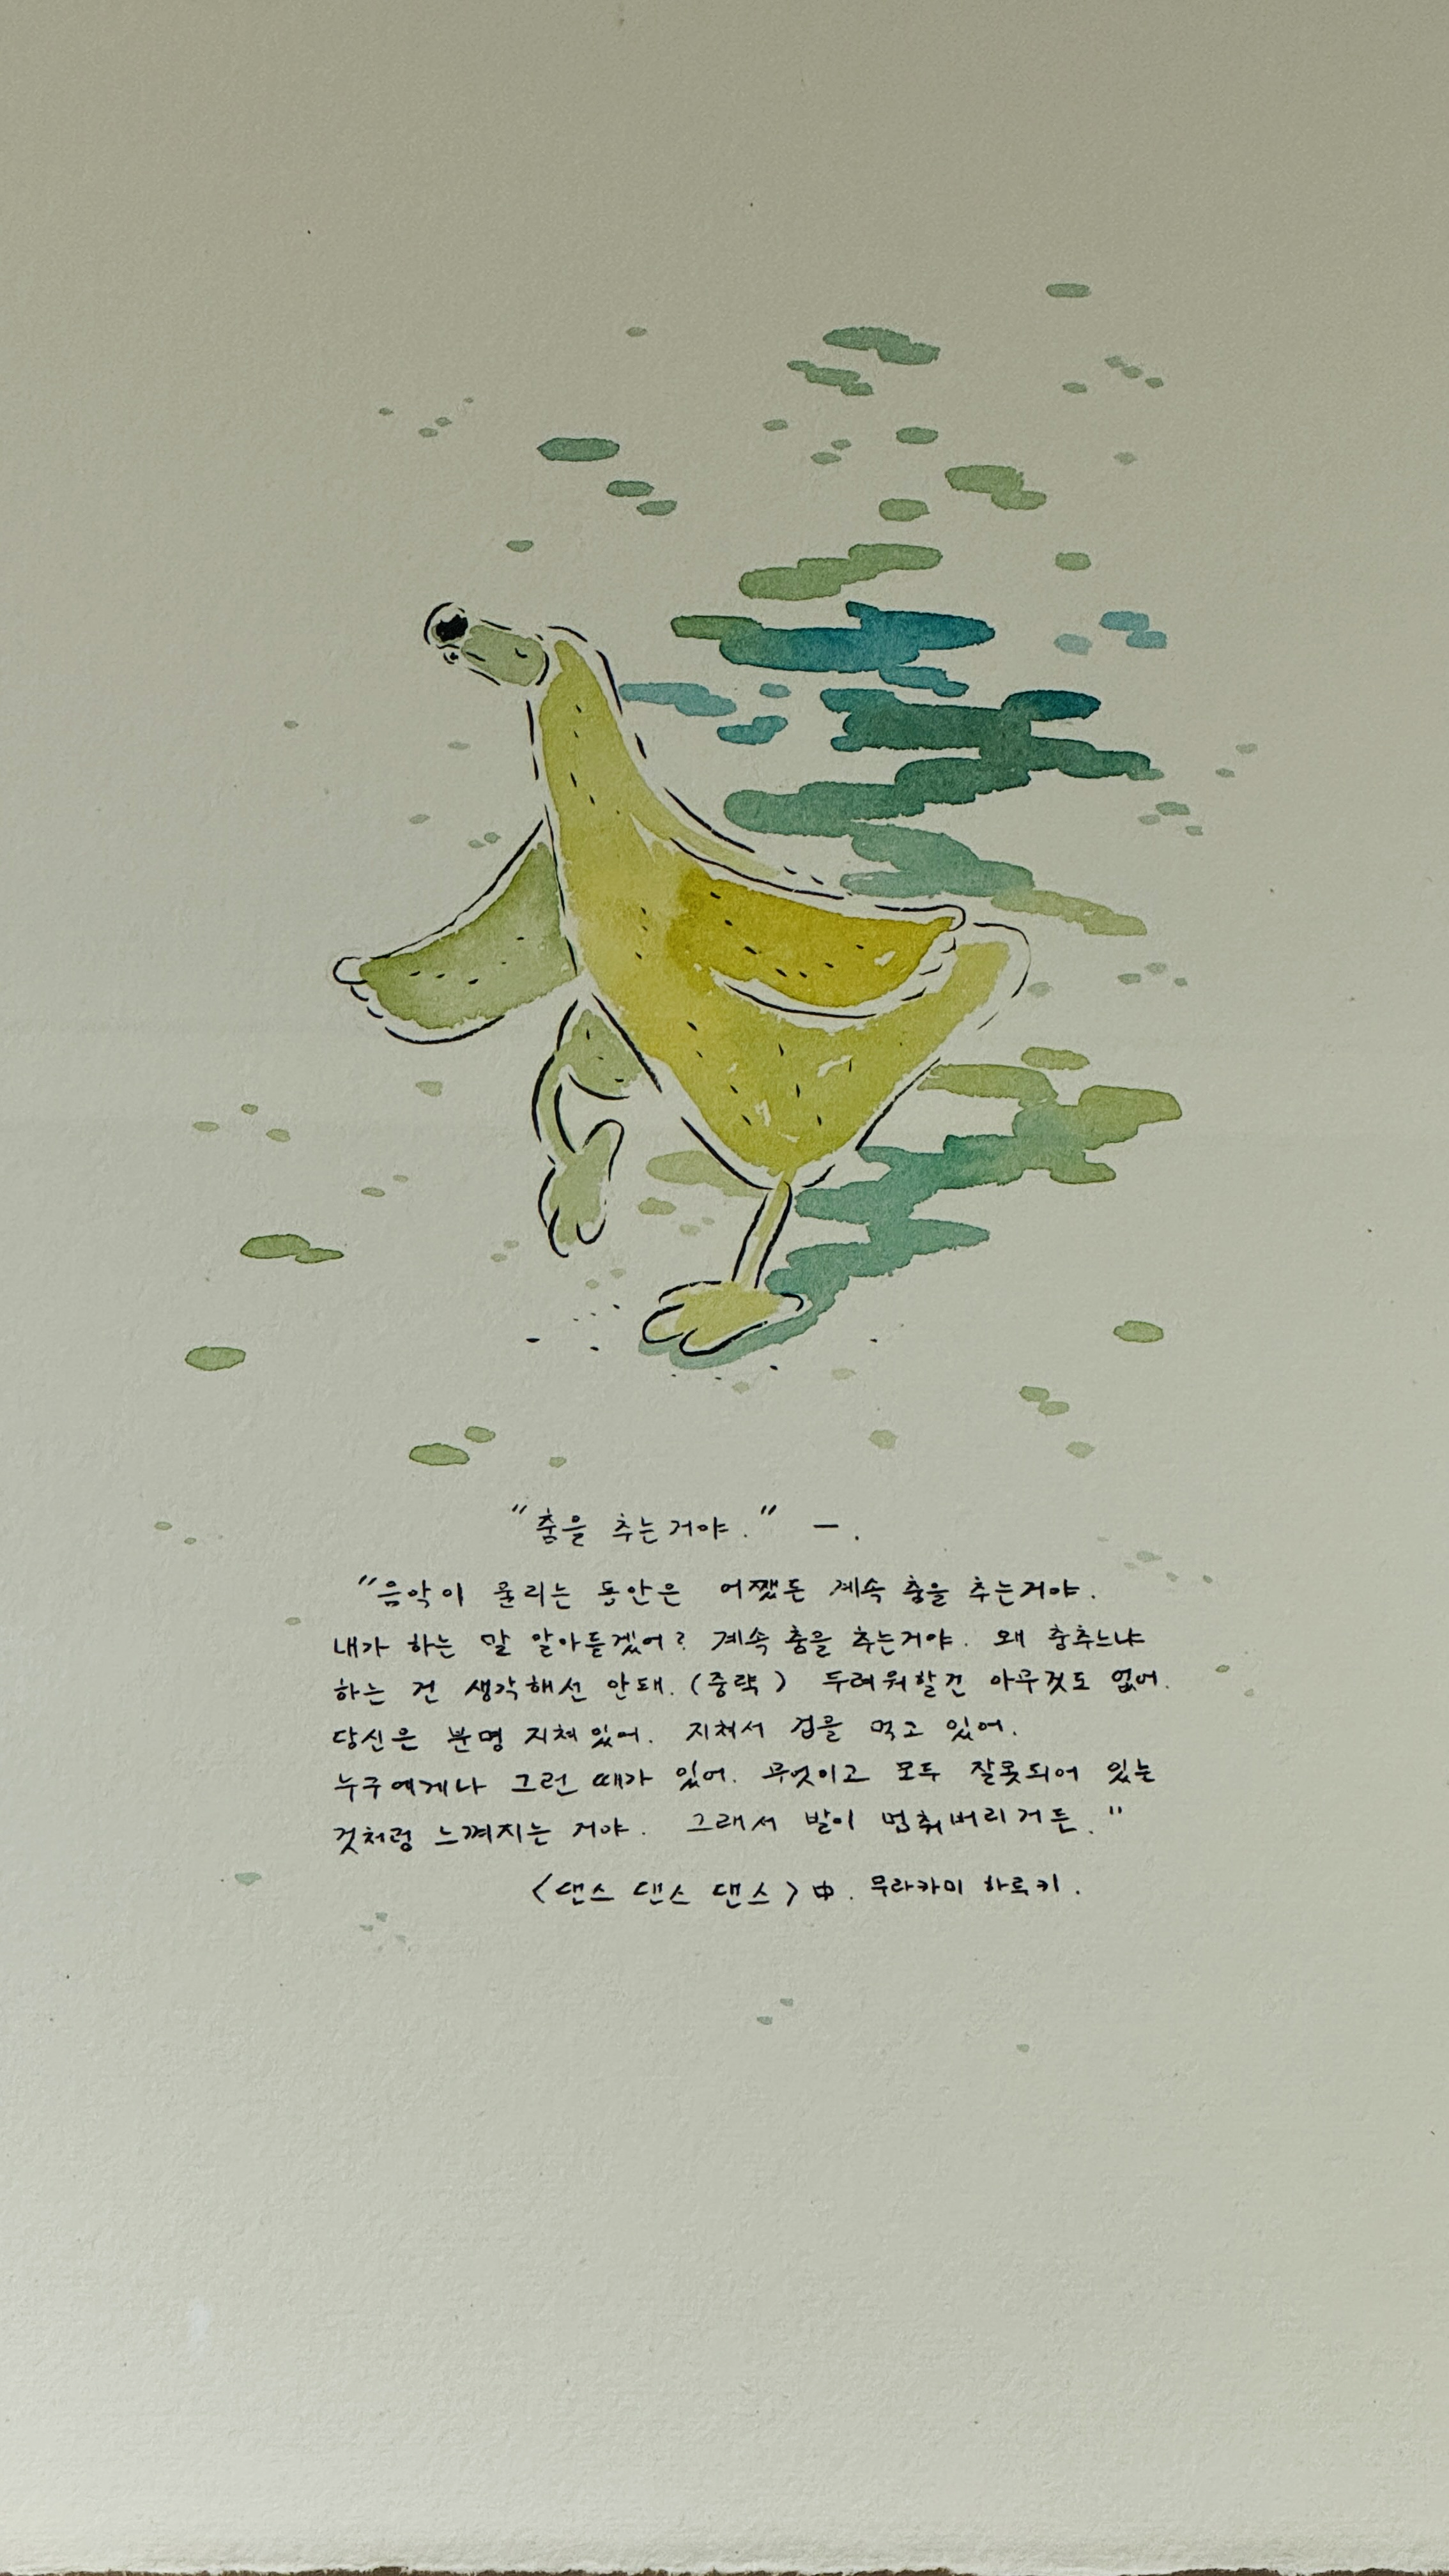 "춤을 추는거야." — .
"음악이 울리는 동안은 어쨌든 계속 춤을 추는거야.
내가 하는 말 알아듣겠어? 계속 춤을 추는거야. 왜 춤추느냐
하는 건 생각해선 안돼. (중략) 두려워할건 아무것도 없어.
당신은 분명 지쳐있어. 지쳐서 겁을 먹고 있어.
누구에게나 그런 때가 있어. 무엇이고 모두 잘못되어 있는
것처럼 느껴지는 거야. 그래서 발이 멈춰버리거든."
<댄스 댄스 댄스> 中. 무라카미 하루키.